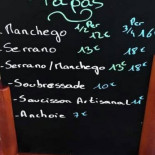 Tapas
1/2 Per 3/4 Per
- Manchego 12€ 16€
- Serrano 13€ 18€
- Serrano/Manchego 13€ 18€
- Soubressade 10€
- Saucisson Artisanal 11€
- Anchoie 7€